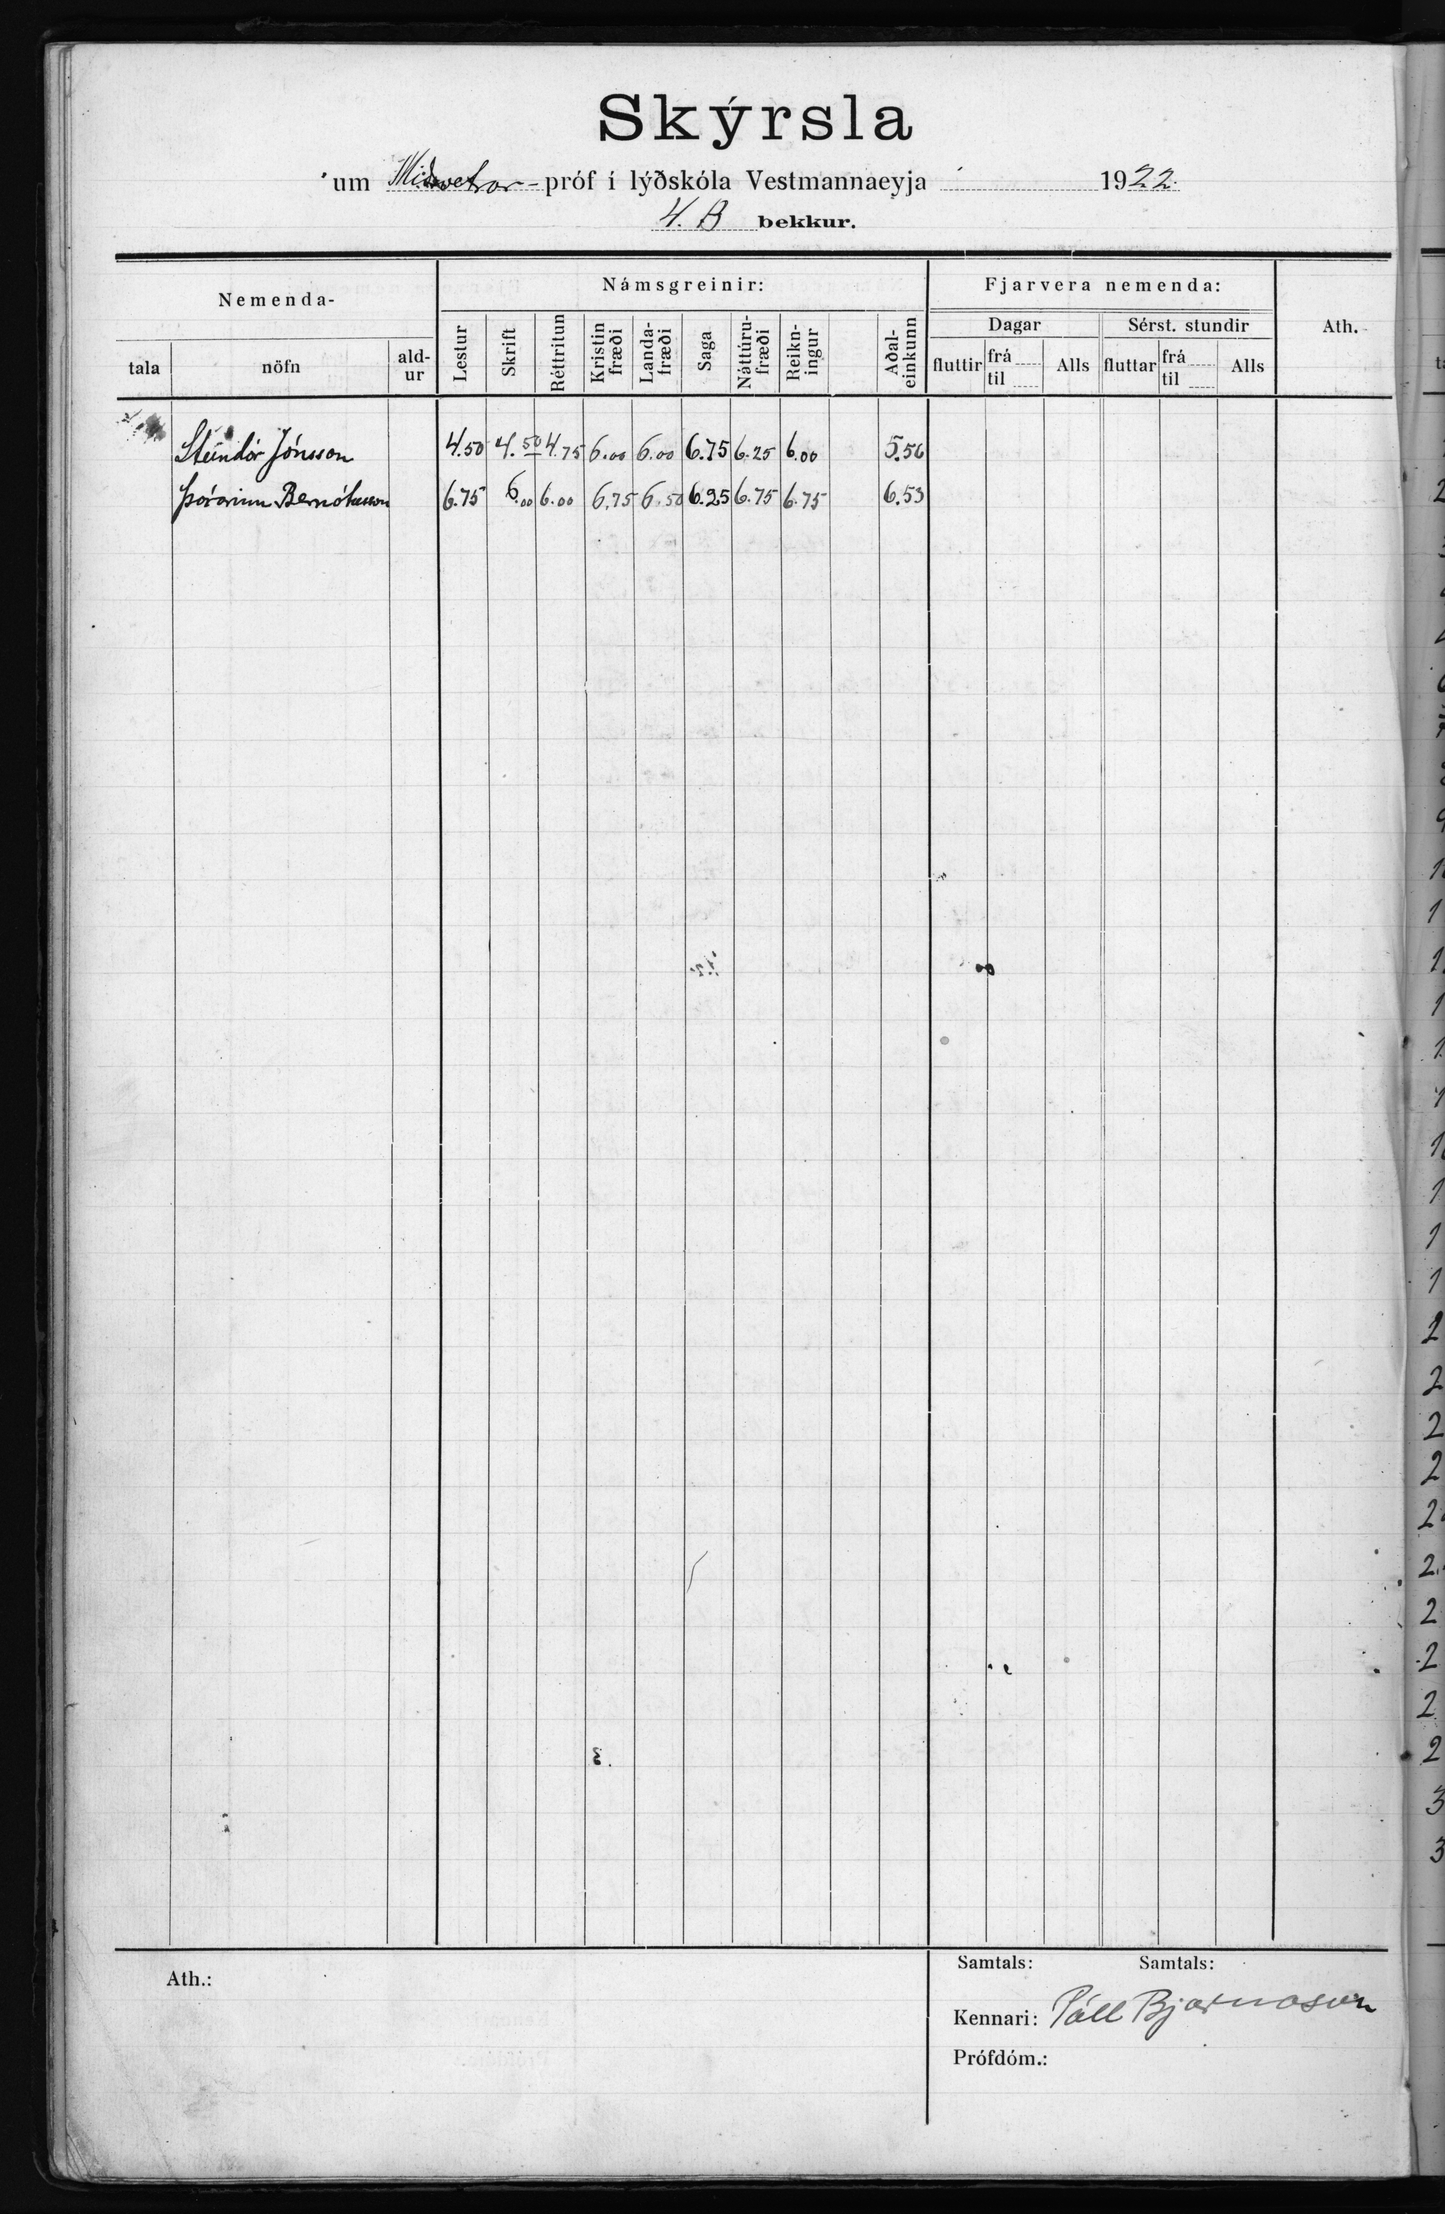 Skýrsla
um Miðvetrar- próf í lýðskóla Vestmannaeyja 1922.
4. B bekkur.
Nemenda-
Námsgreinir:
Fjarvera nemenda:
Ath.
tala nöfn ald-ur Lestur Skrift Réttritun Kristin fræði Landa-fræði Saga Náttúru-fræði Reikn-ingur Aðal-einkunn
Dagar Sérst. stundir
fluttir frá til Alls fluttar frá til Alls
Steindór Jónsson 4.50 4.50 4.75 6.00 6.00 6.75 6.25 6.00 5.56
Þórarinn Bernótusson 6.75 6.00 6.00 6.75 6.50 6.25 6.75 6.75 6.53
Ath.:
Samtals: Samtals:
Kennari: Páll Bjarnason
Prófdóm.: